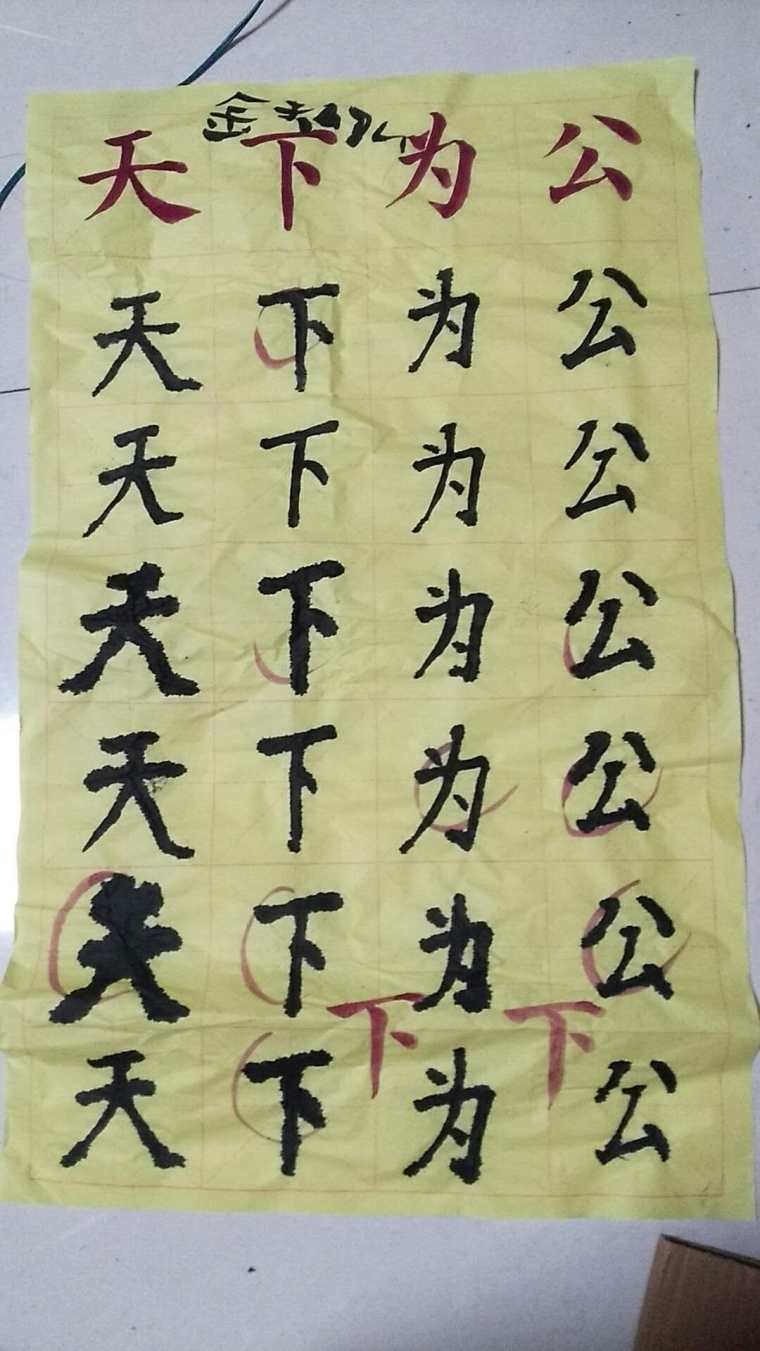 金
天下为公
天下为公
天下为公
天下为公
天下为公
天下为公
下下
天下为公